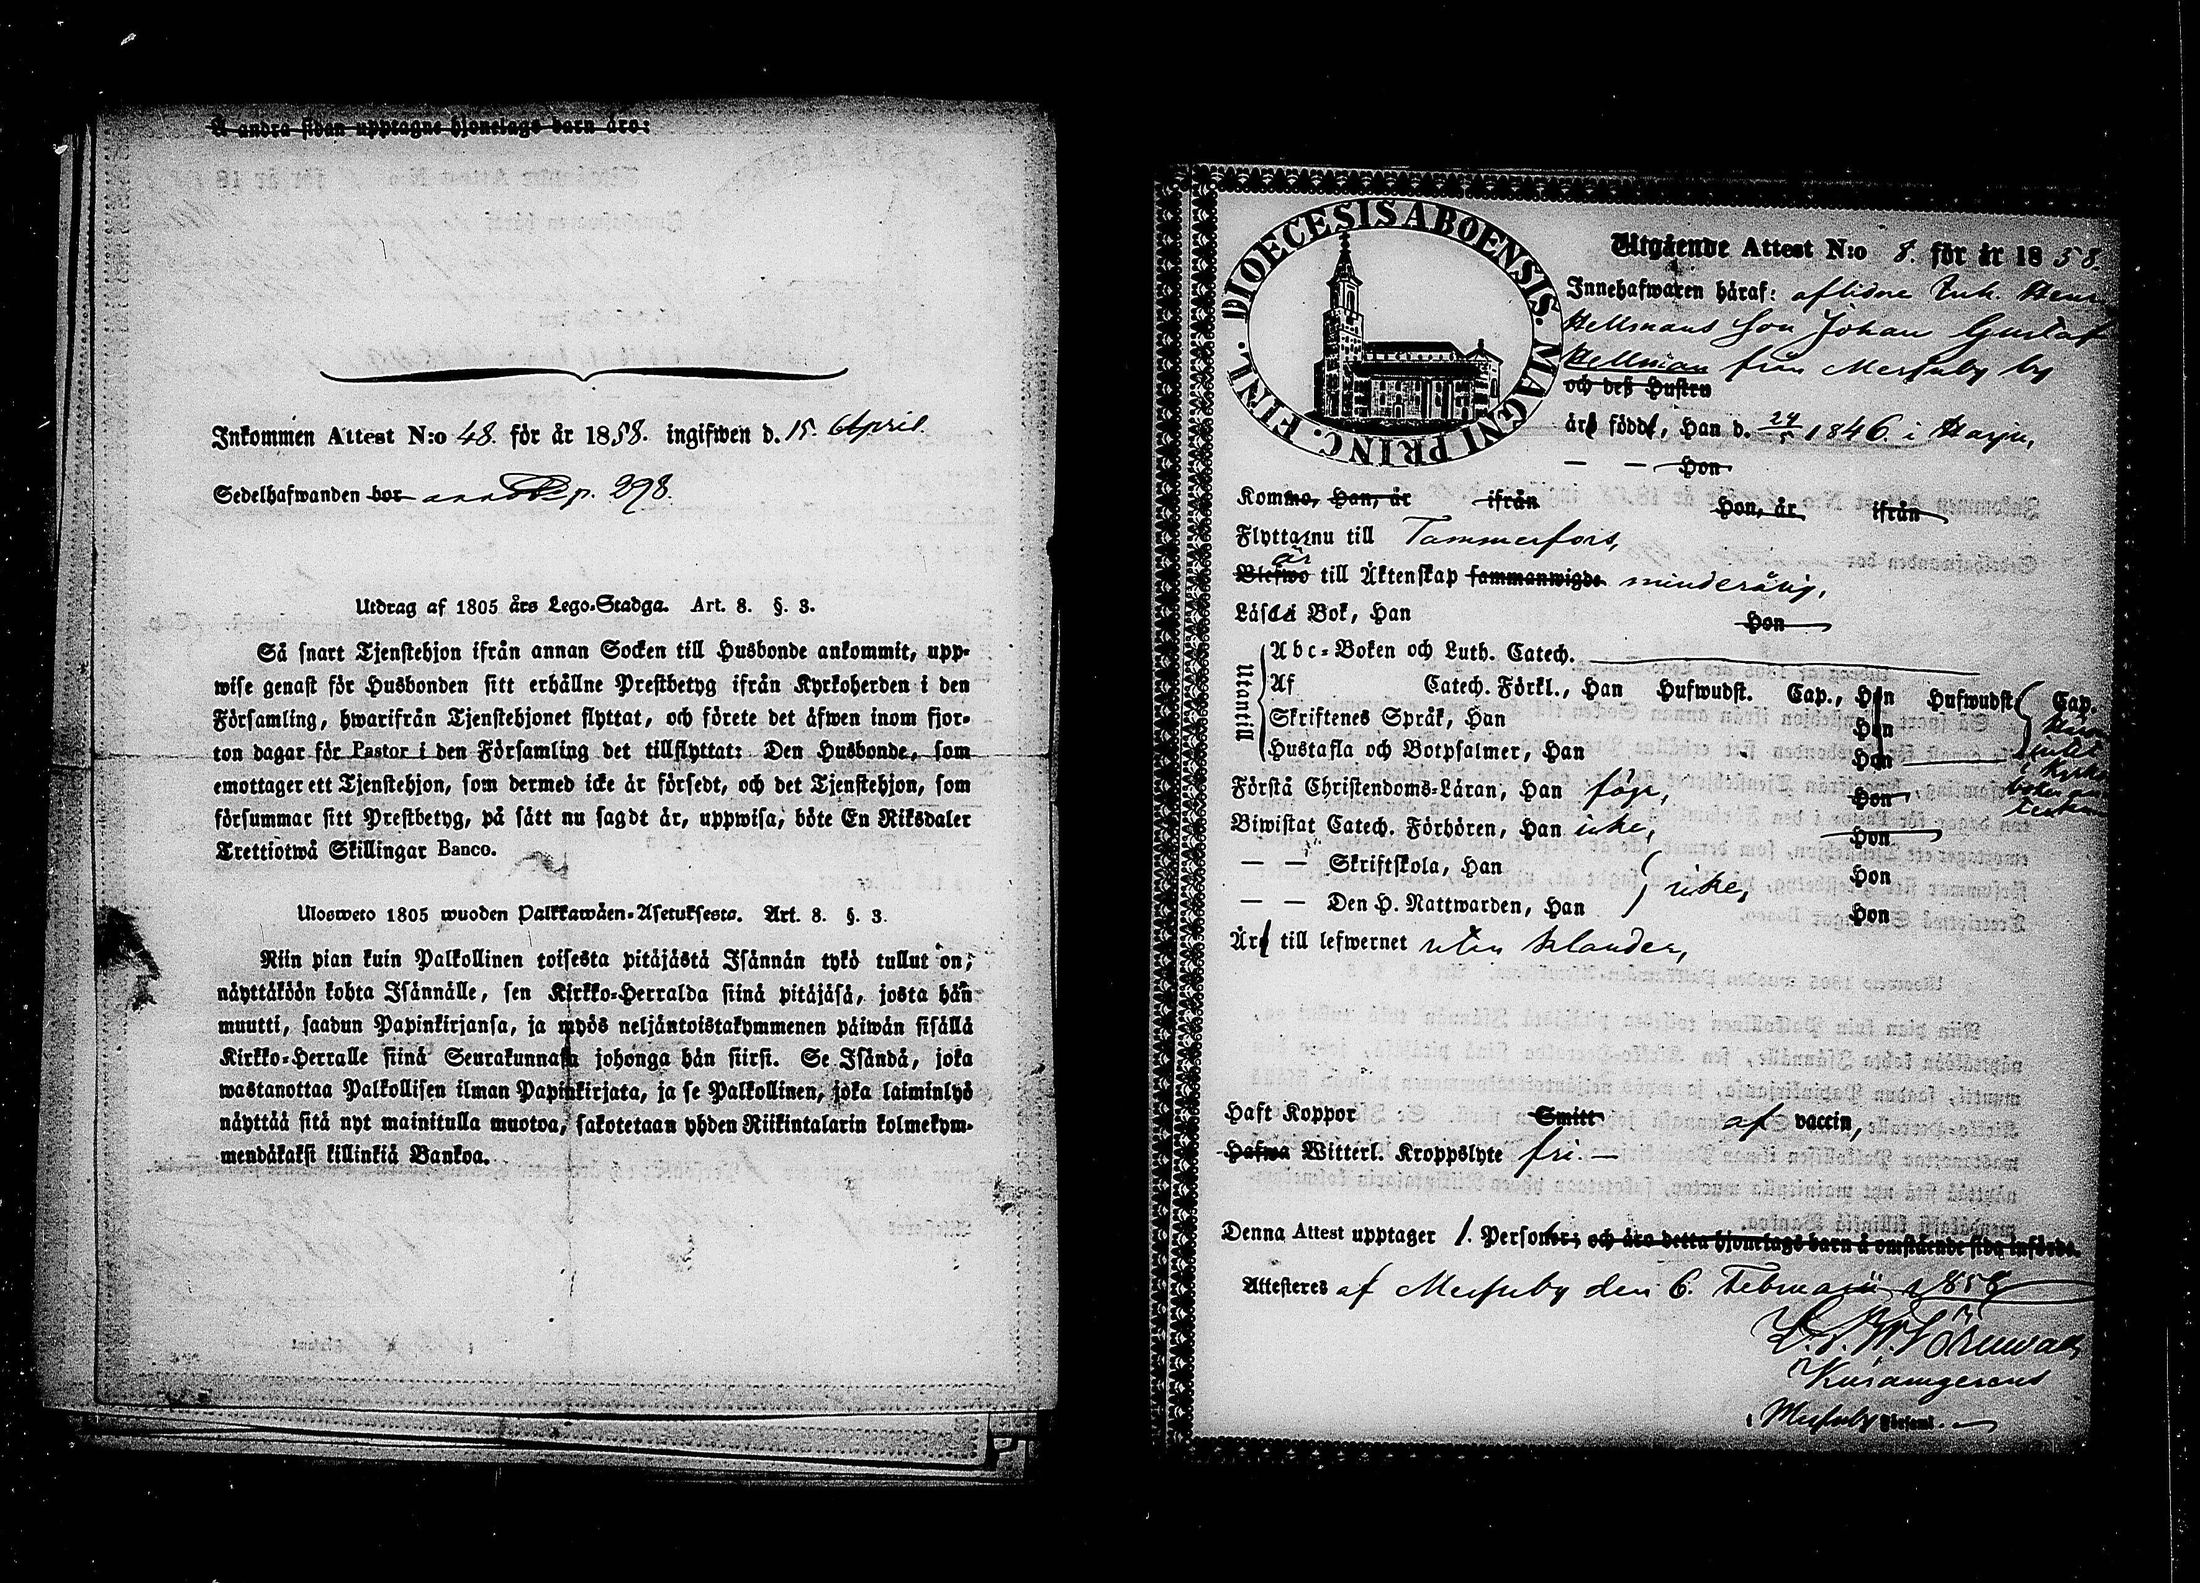 Å andra sidan upptagne hjonelags barn äro:
Inkommen Attest N:o 48. för år 1858. ingifwen d. 15. April
Sedelhafwanden bor p. 298.
Utdrag af 1805 års Lego-Stadga. Art. 8. §. 3.
Så snart Tjenstehjon ifrån annan Socken till Husbonde ankommit, upp-
wise genast för Husbonden sitt erhållne Prestbetyg ifrån Kyrkoherden i den
Församling, hwarifrån Tjenstehjonet flyttat, och förete det äfwen inom fjor-
ton dagar för Pastor i den Församling det tillflyttat: Den Husbonde, som
emottager ett Tjenstehjon, som dermed icke är försedt, och det Tjenstehjon, som
försummar sitt Prestbetyg, på sätt nu sagdt är, uppwisa, böte En Riksdaler
Trettiotwå Skillingar Banco.
Ulosweto 1805 wuoden Palkkawäen-Asetuksesta. Art. 8. §. 3.
Niin pian kuin Palkollinen toisesta pitäjästä Isännän tykö tullut on,
näyttäköön kohta Isännälle, sen Kirkko-Herralda siinä pitäjäsä, josta hän
muutti, saadun Papinkirjansa, ja myös neljäntoistakymmenen päiwän sisällä
Kirkko-Herralle siinä Seurakunnasa johonga hän siirsi. Se Isändä, joka
wastanottaa Palkollisen ilman Papinkirjata, ja se Palkollinen, joka laiminlyö
näyttää sitä nyt mainitulla muotoa, sakotetaan yhden Riikintalarin kolmekym-
mendäkaksi killinkiä Bankoa.
DIOECESIS ABOENSIS. MAGNI PRINC. FINL.
Utgående Attest N:o 8. för år 1858.
Innehafwaren häraf: aflidne Inh. Henr
Hellmans Son Johan Gustaf
Hellman från Messuby by
och deß Hustru
är född, Han d. 24/5 1846. i Harju,
— — Hon
Komme, Han, år ifrån Hon, år ifrån
Flytta nu till Tammerfors,
är
Blefwo till Äktenskap sammanwigde minderårig,
Läsa i Bok, Han Hon
Utantill
Abc-Boken och Luth. Catech.
Af Catech. Förkl., Han Hufwudst. Cap., Hon Hufwudst. Cap.
Skriftenes Språk, Han Hon
Hustafla och Botpsalmer, Han Hon
i Kyrko
Förstå Christendoms-Läran, Han föga, Hon
Biwistat Catech. Förhören, Han icke, Hon
— — Skriftskola, Han Hon
icke,
— — Den H. Nattwarden, Han Hon
Är till lefwernet utan klander,
Haft Koppor Smitt af vaccin,
Hafwa Witterl. Kroppslyte fri. —
Denna Attest upptager 1. Personer; och äro detta hjonelags barn å omstående sida införde.
Attesteres af Messuby den 6. Februarii 1858
Messuby Församl.